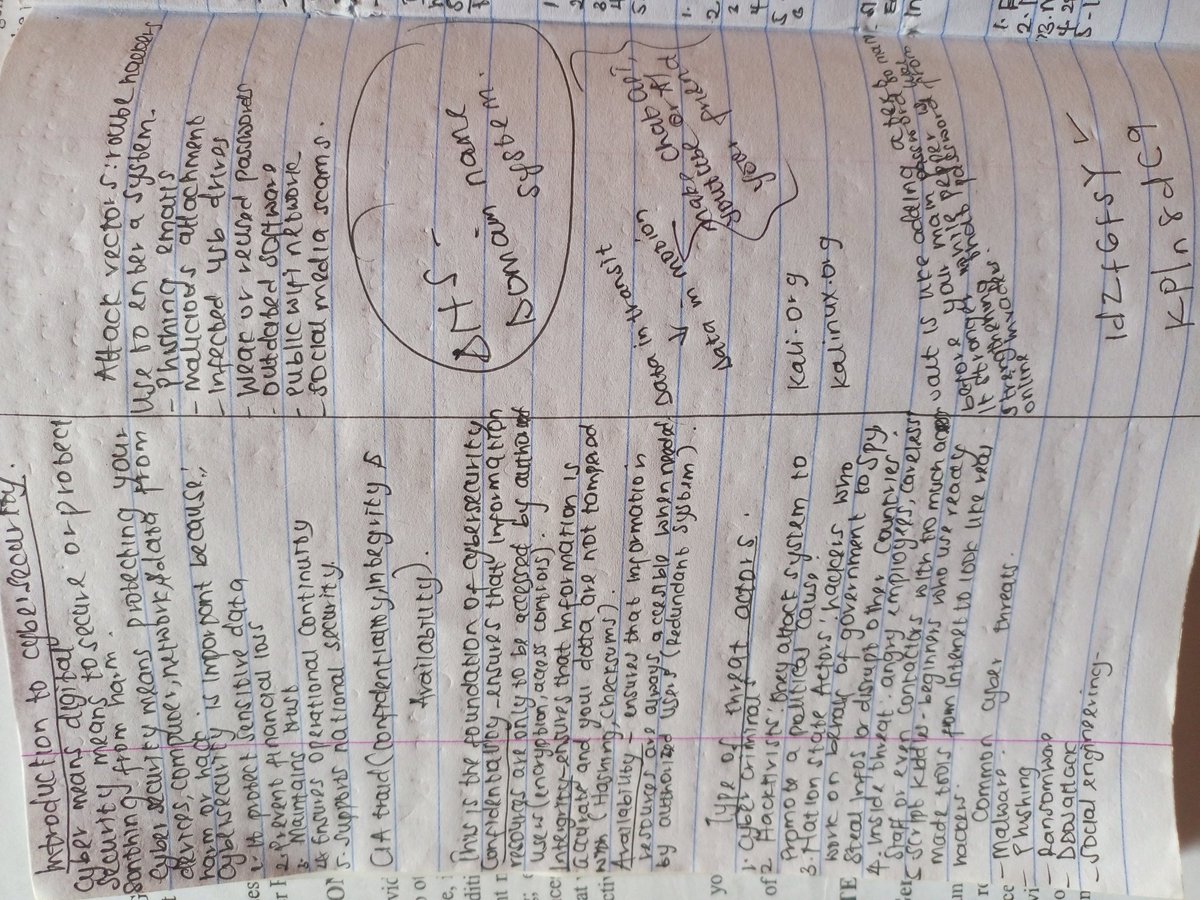 Introduction to cybersecurity.
Cyber means digital
Security means to secure or protect
something from harm.
Cybersecurity means protecting your
devices, computer, network, & data from
harm or
Cybersecurity is important because,,
1. It protect sensitive data
2. Prevent financial loss
3. Maintains trust
4. Ensures operational continuity
5. Supports national security.
CIA triad (Confidentiality, Integrity &
Availability).
This is the foundation of cybersecurity
Confidentiality - ensures that information
resources are only to be accessed by
users (encryption access controls).
Integrity - ensures that information is
accurate and you data are not tampered
with (Hashing, Checksums).
Availability - ensures that information
resources are always accesible when needed
by authorized users (Redundant system).
Type of threat actors.
1. Cyber criminal
2. Hacktivists: They attack system to
Promote a political cause,
3. Nation state Actors: hackers who
work on behalf of government to spy,
Steal infos or disrupt other countries.
4. Inside threat - angry employees, careless
Staff or even contractors with too much
5. Script kiddie - beginners who use ready
made tools from internet to look like real
hackers.
Common cyber threats
- Malware
- Phishing
- Ransomware
- Dos attack
- Social engineering -
Attack vectors: route hackers
Use to enter a system.
- Phishing emails
- malicious attachment
- infected usb drives
- Weak or reused passwords
- outdated software
- Public wifi network
- Social media scams.
DNS -
Domain name
system.
Data in transit
Data in motion
Snake
your
your friend
kali.org
kalinux.org
salt is like adding
before your main password
it stronger while pepper
strengthening
online
1dZf6fsY
KPln8dC9